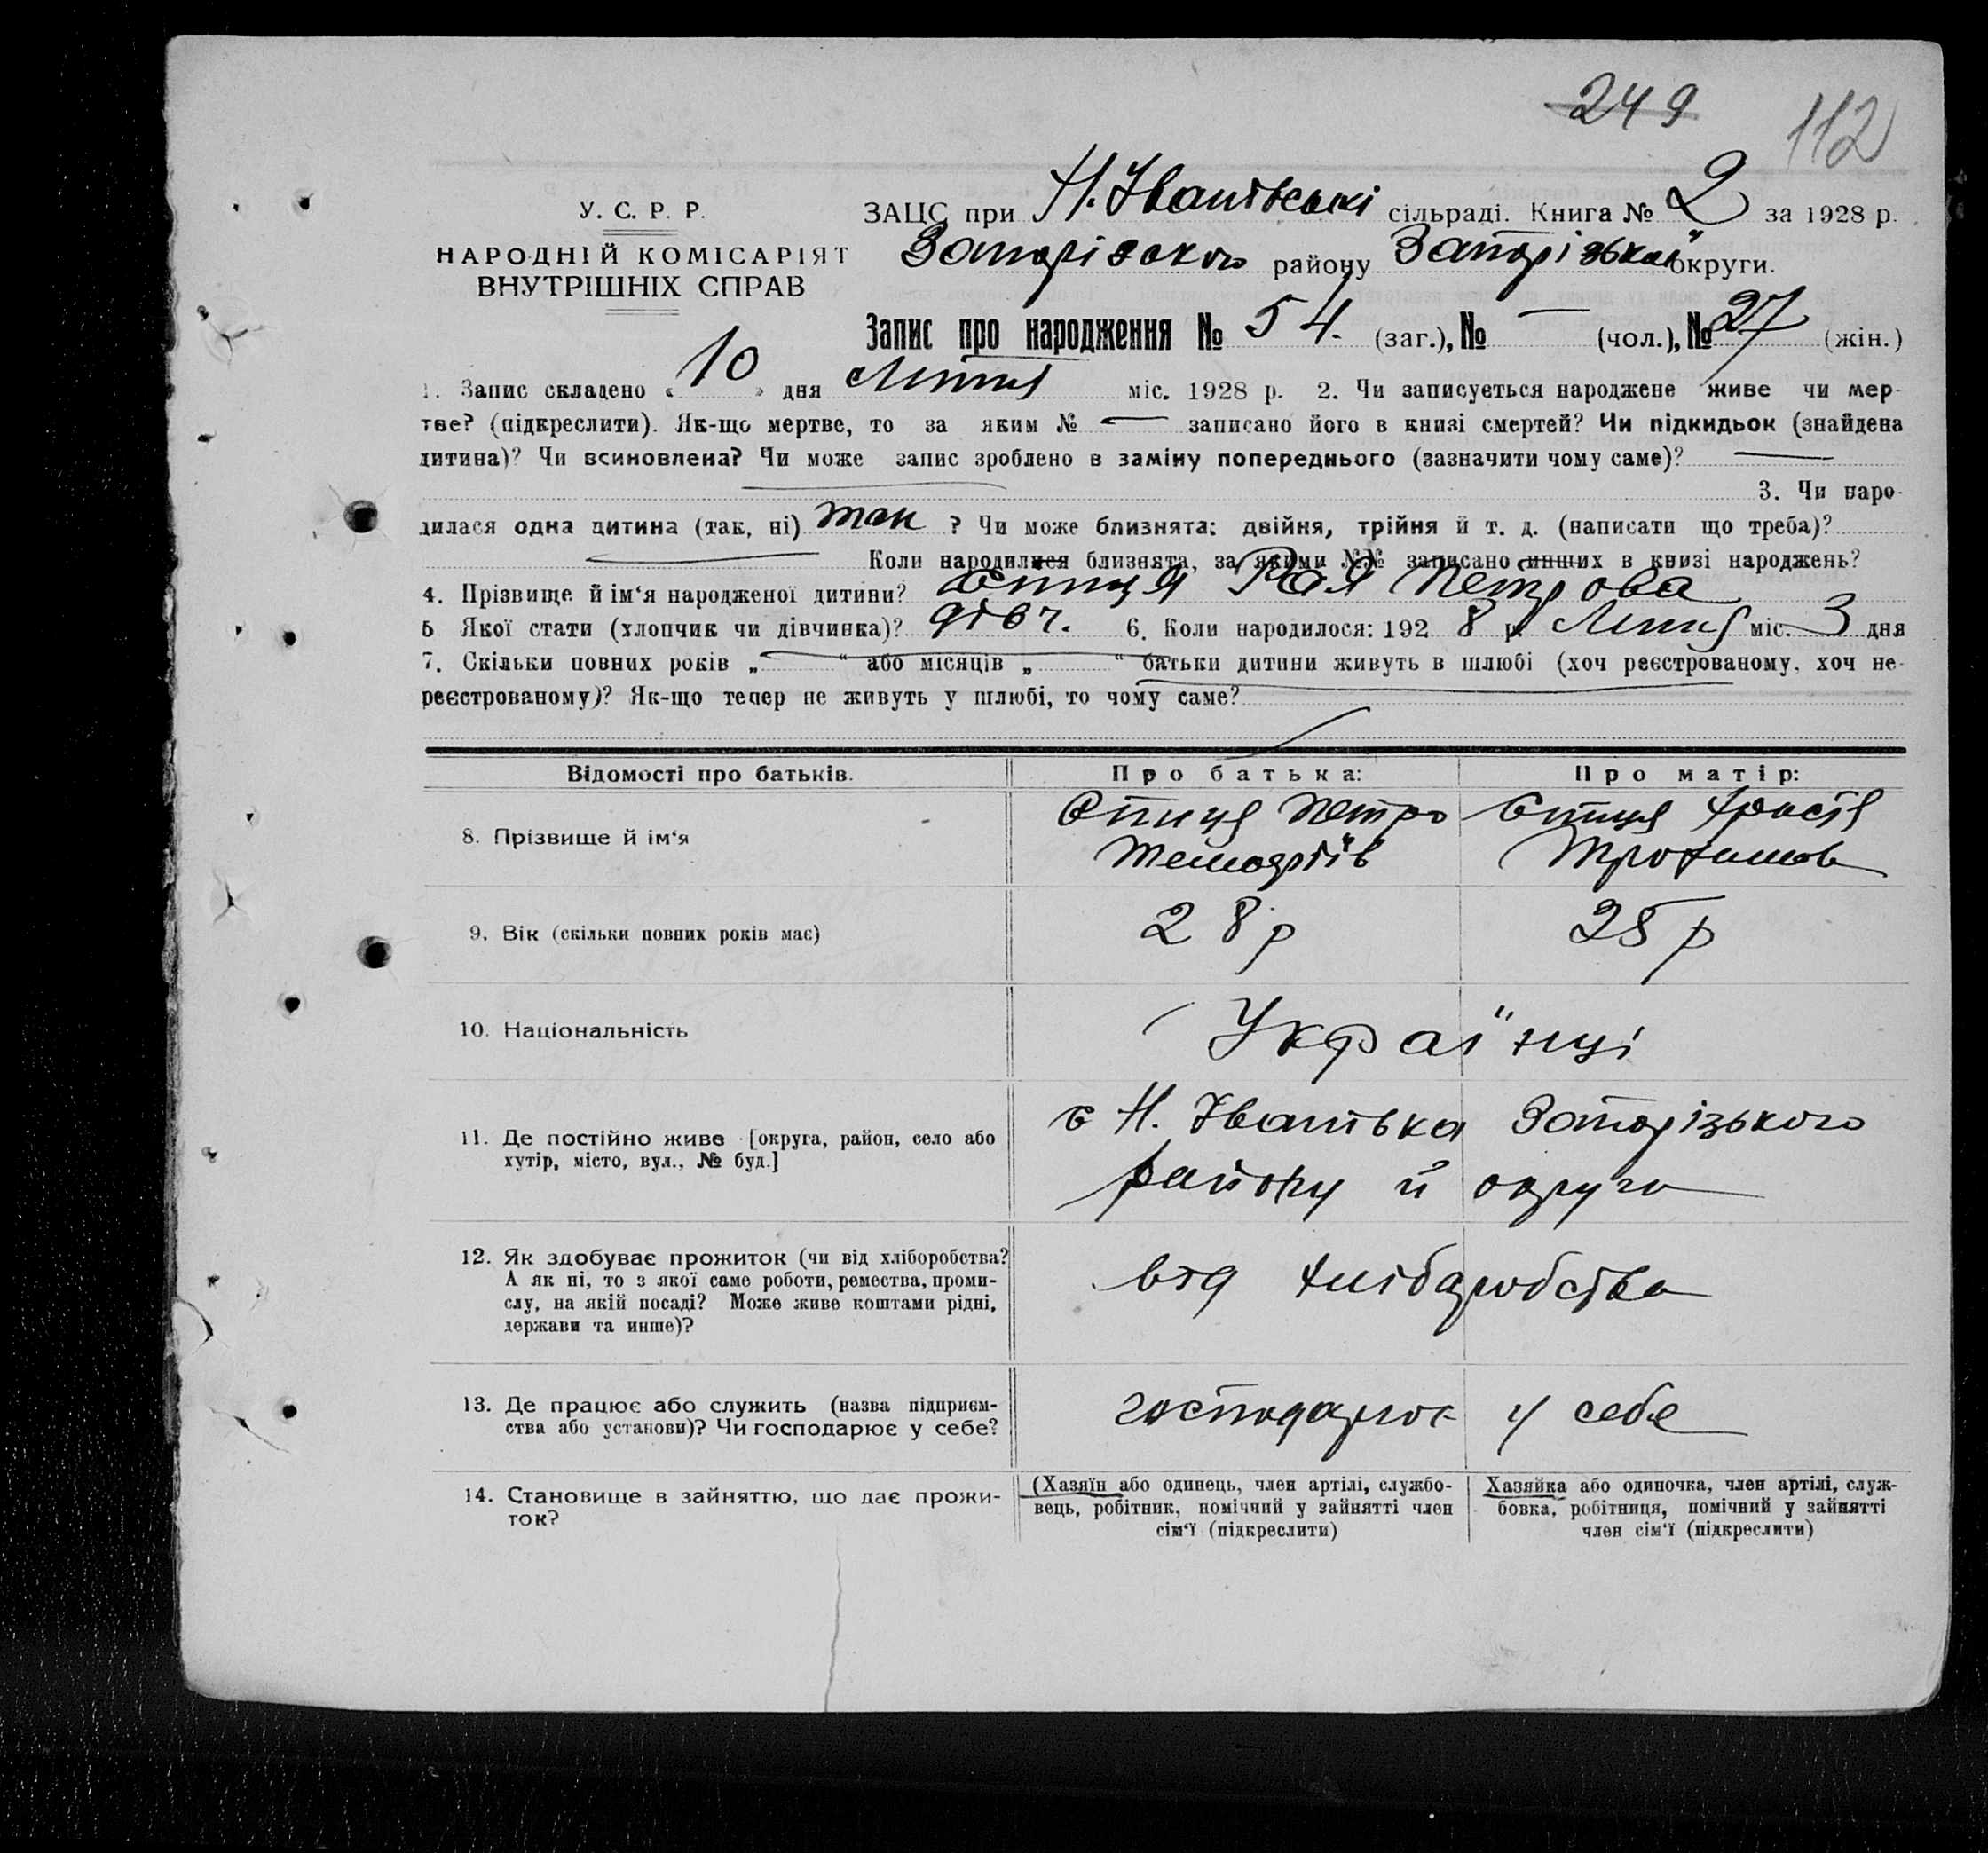 249
112
У. С. Р. Р.
НАРОДНІЙ КОМІСАРІЯТ
ВНУТРІШНІХ СПРАВ
ЗАЦС при Н. Іванівські сільраді. Книга № 2 за 1928 р.
Запорізского району Запорізької округи.
Запис про народження № 54. (заг.), № — (чол.), № 27 (жін.)
1. Запис складено « 10 » дня Липня міс. 1928 р. 2. Чи записується народжене живе чи мер-
тве? (підкреслити). Як-що мертве, то за яким № — записано його в книзі смертей? Чи підкидьок (знайдена
дитина)? Чи всиновлена? Чи може запис зроблено в заміну попереднього (зазначити чому саме)? —
3. Чи наро-
дилася одна дитина (так, ні) так ? Чи може близнята: двійня, трійня й т. д. (написати що треба)?
— Коли народилися близнята, за якими №№ записано инших в книзі народжень?
4. Прізвище й ім‘я народженої дитини? Рая Петрова
5 Якої стати (хлопчик чи дівчинка)? дівч. 6. Коли народилося: 192 8 р. Липня міс. 3 дня
7. Скільки повних років „ — “ або місяців „ — “ батьки дитини живуть в шлюбі (хоч реєстрованому, хоч не-
реєстрованому)? Як-що тепер не живуть у шлюбі, то чому саме?
Відомості про батьків.
Про батька:
Про матір:
8. Прізвище й ім‘я
Петро
9. Вік (скільки повних років має)
28 р
25 р
10. Національність
Українці
11. Де постійно живе [округа, район, село або
хутір, місто, вул., № буд.]
с Н. Іванівка Запорізького
району й округи
12. Як здобуває прожиток (чи від хліборобства?
А як ні, то з якої саме роботи, ремества, проми-
слу, на якій посаді? Може живе коштами рідні,
держави та инше)?
від хліборобства
13. Де працює або служить (назва підприєм-
ства або установи)? Чи господарює у себе?
господарює у себе
14. Становище в зайняттю, що дає прожи-
ток?
(Хазяїн або одинець, член артілі, службо-
вець, робітник, помічний у зайнятті член
сім‘ї (підкреслити)
Хазяйка або одиночка, член артілі, служ-
бовка, робітниця, помічний у зайнятті
член сім‘ї (підкреслити)